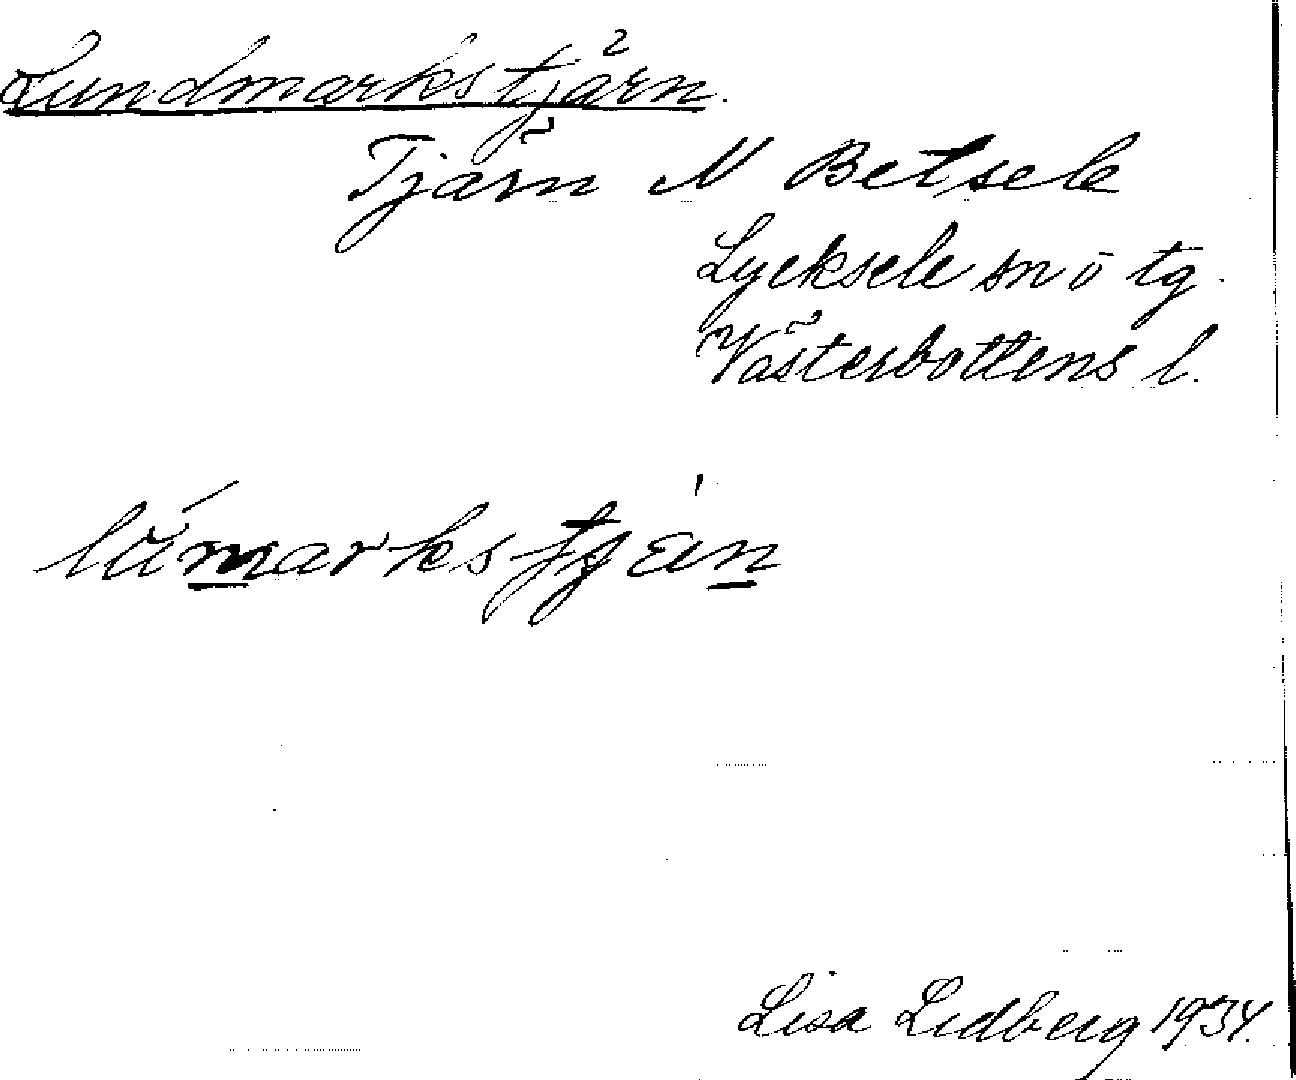 Lundmarkstjärn.
Tjärn N Betsele
Lycksele sn o tg.
Västerbottens l.
Lisa Lidberg 1934.